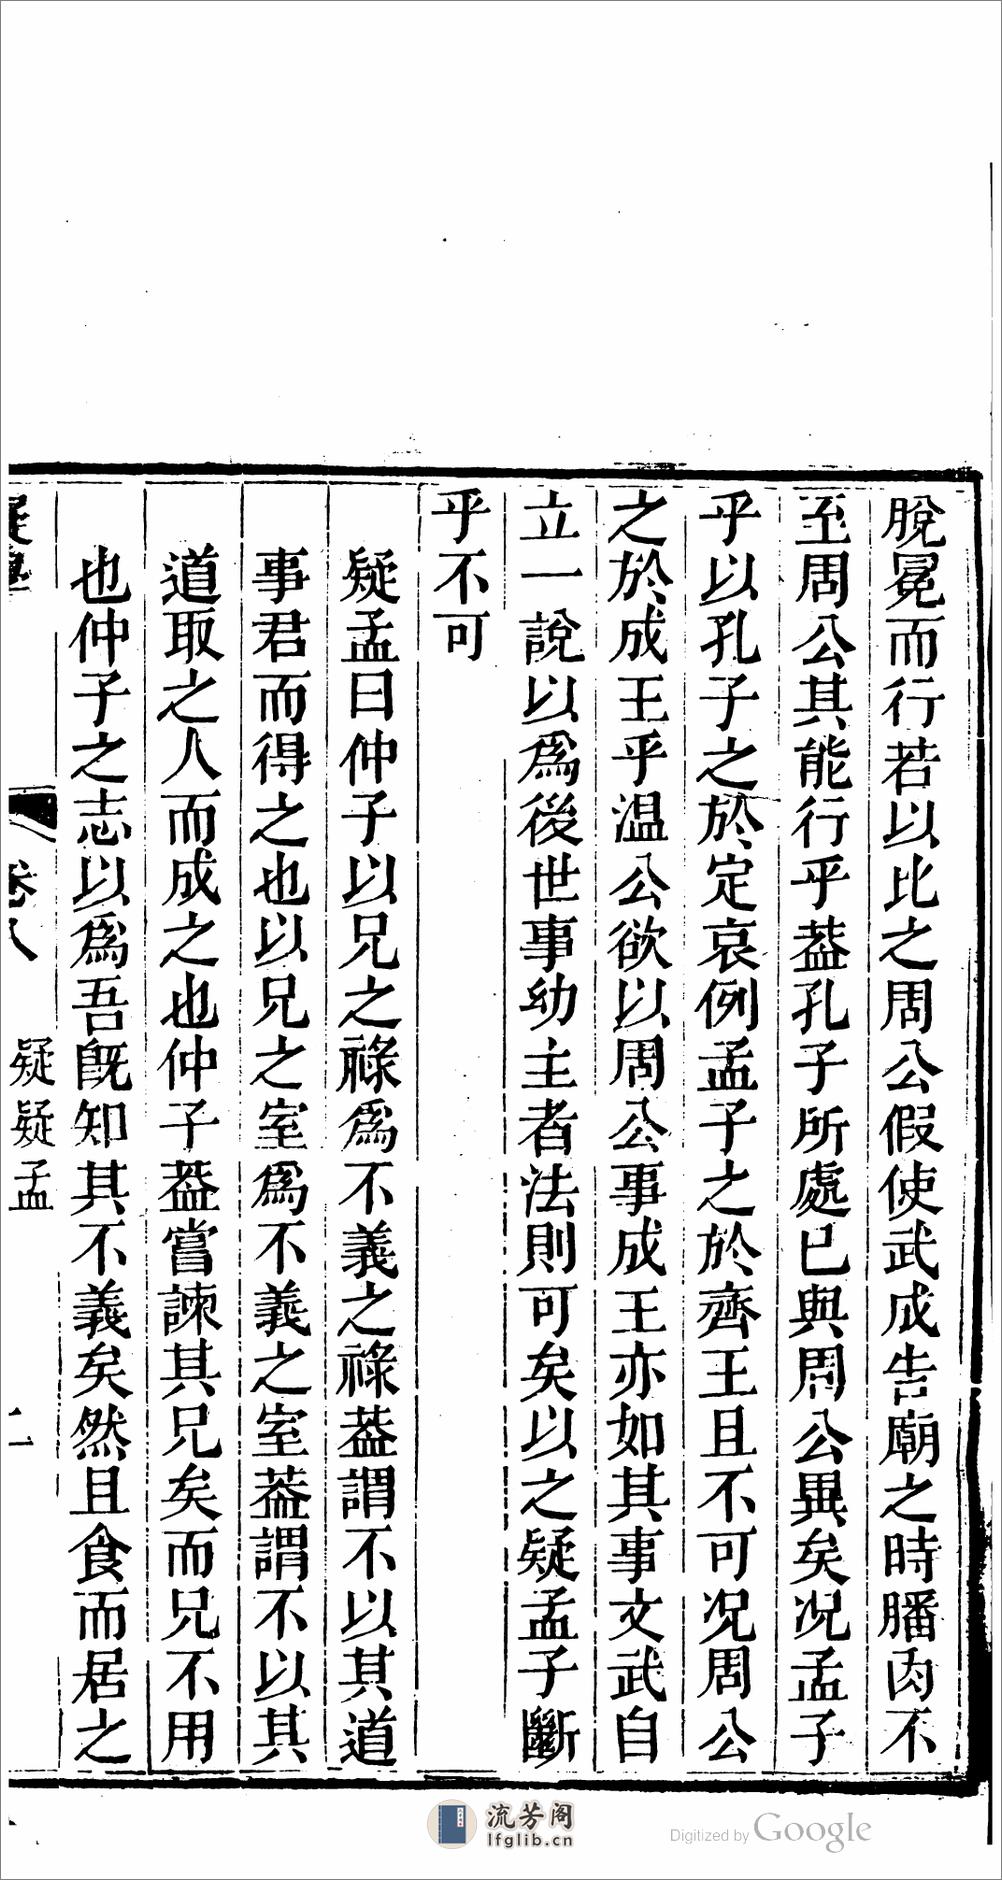 脫冕而行若以比之周公假使武成告廟之時膰肉不
至周公其能行乎葢孔子所處已與周公異矣况孟子
乎以孔子之於定哀例孟子之於齊王且不可况周公
之於成王乎温公欲以周公事成王亦如其事文武自
立一說以爲後世事幼主者法則可矣以之疑孟子斷
乎不可
疑孟曰仲子以兄之祿爲不義之祿葢謂不以其道
事君而得之也以兄之室爲不義之室葢謂不以其
道取之人而成之也仲子葢嘗諫其兄矣而兄不用
也仲子之志以爲吾旣知其不義矣然且食而居之
卷八 疑疑孟 二
流芳阁
lfglib.cn
Digitized by Google